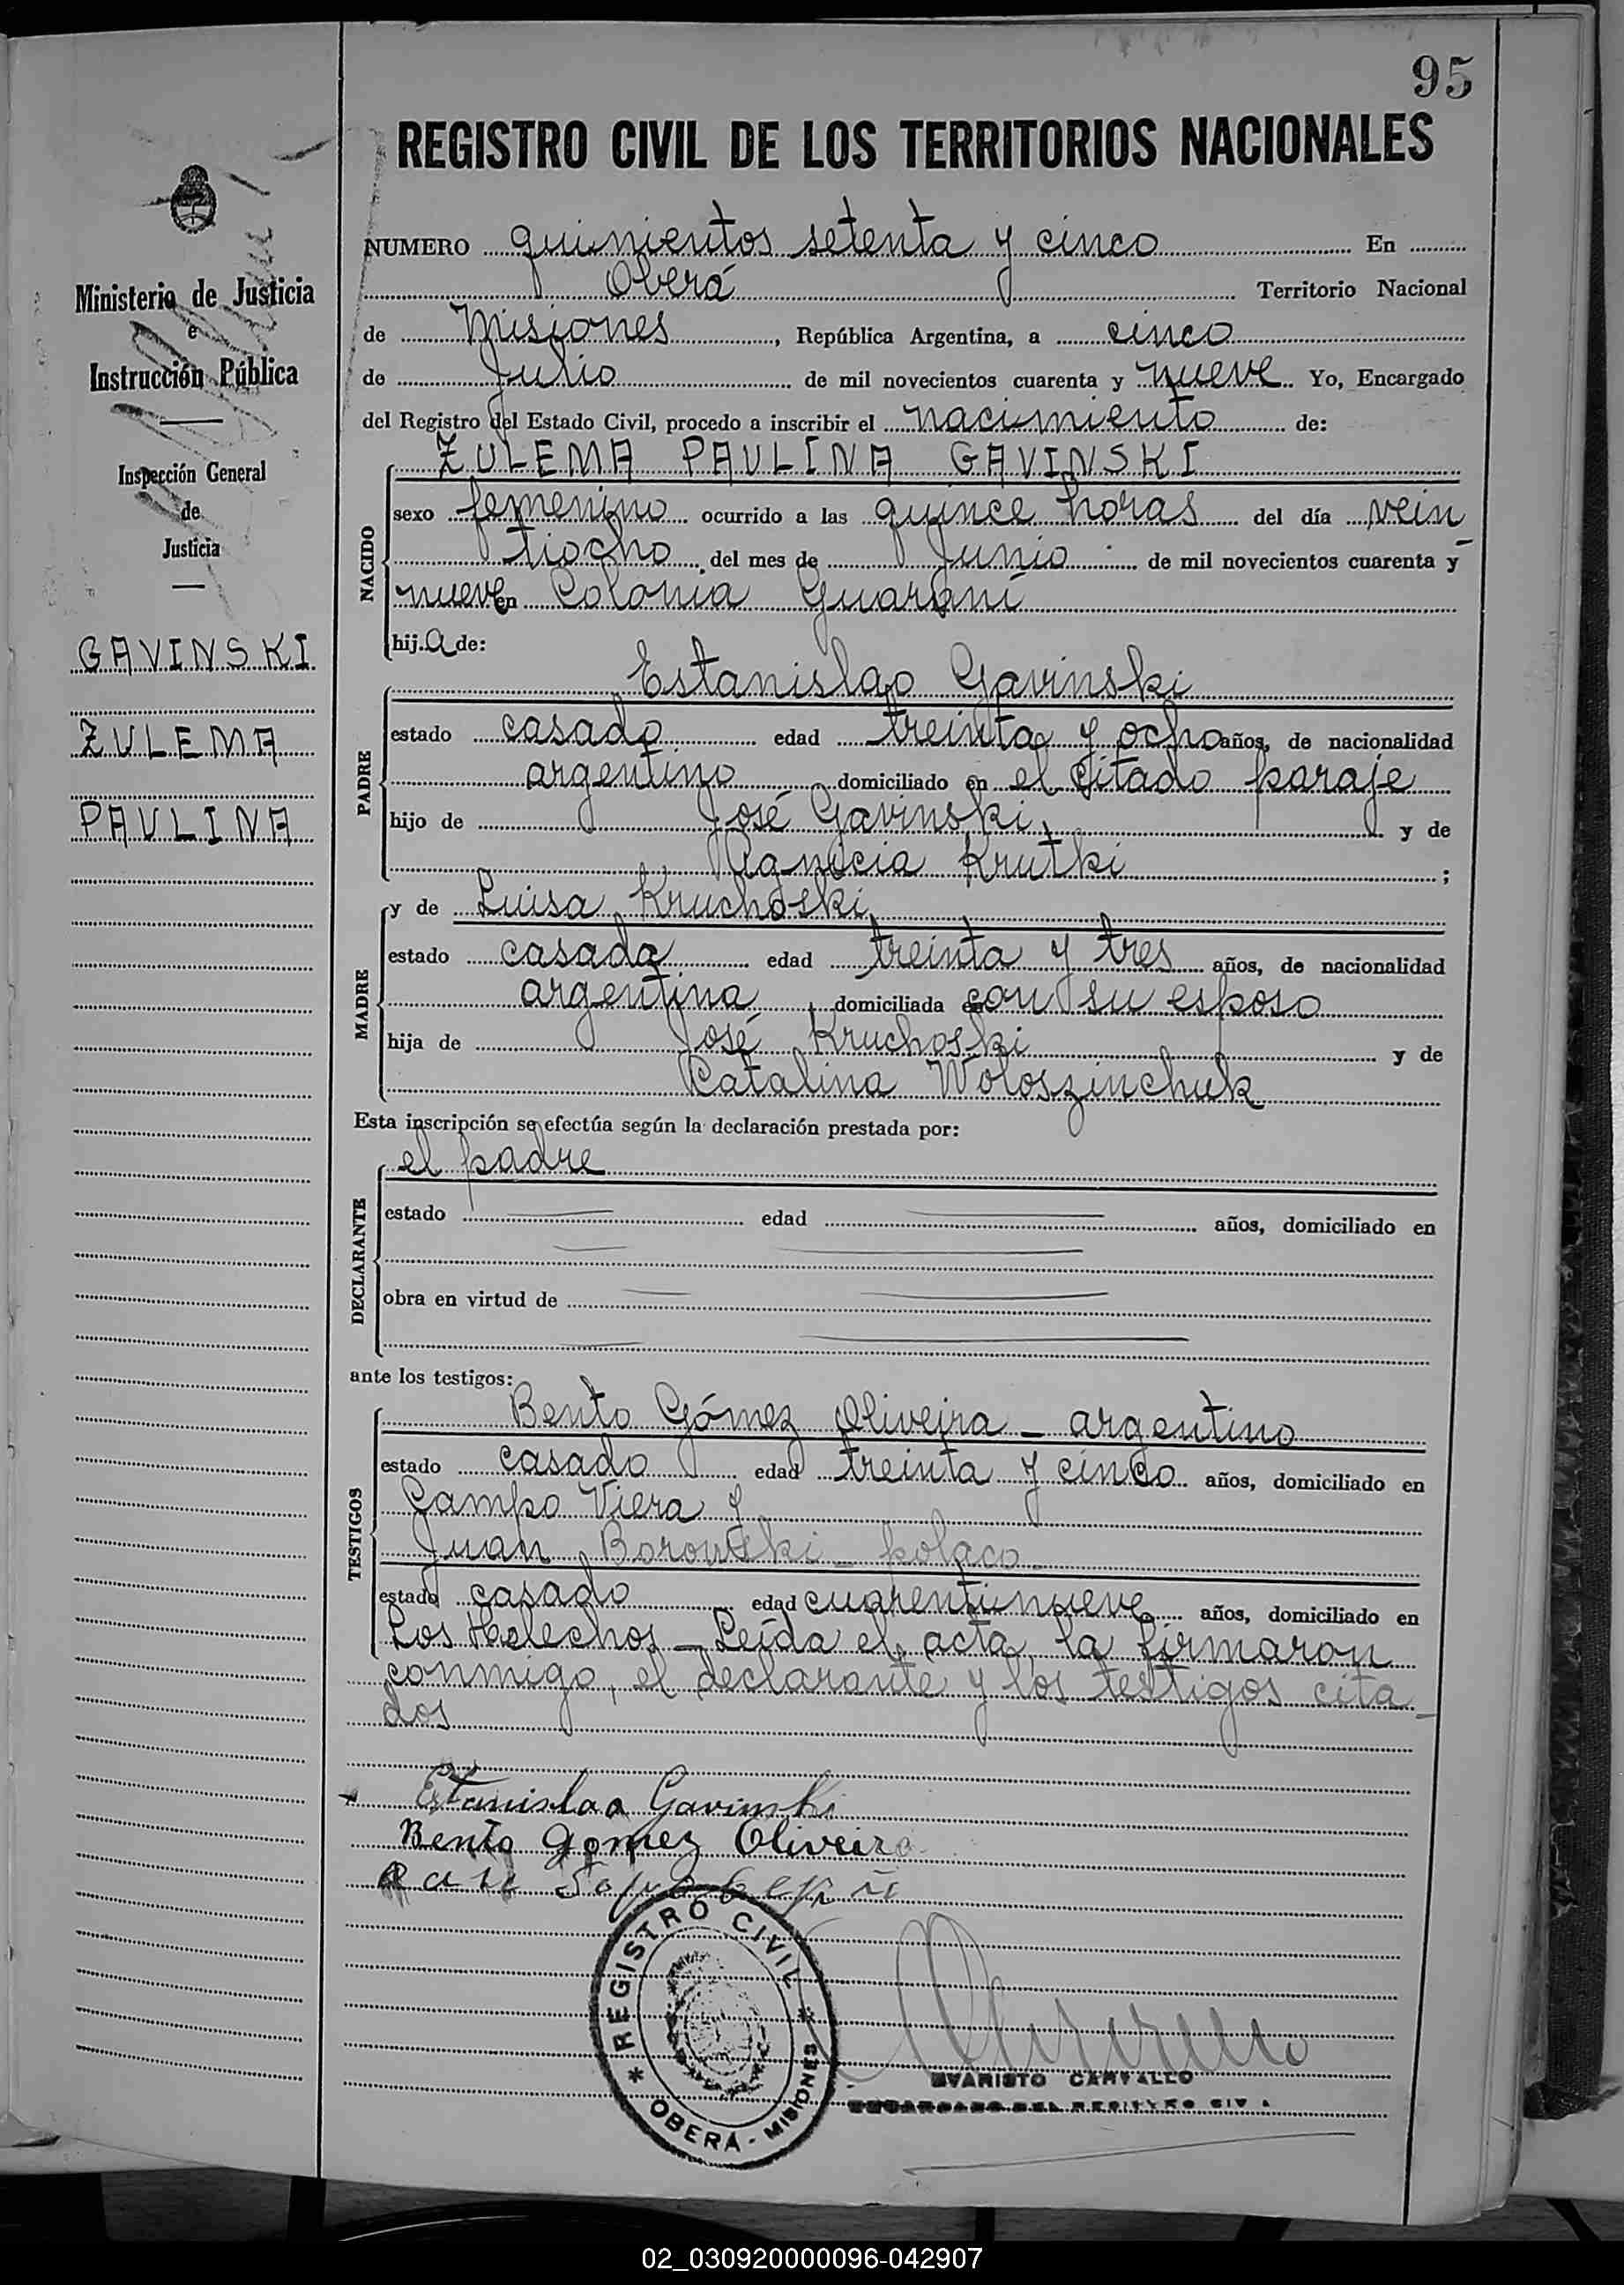 95
REGISTRO CIVIL DE LOS TERRITORIOS NACIONALES
Ministerio de Justicia
e
Instrucción Pública
Inspección General
de
Justicia
GAVINSKI
ZULEMA
PAULINA
NUMERO quinientos setenta y cinco En
Oberá Territorio Nacional
de Misiones, República Argentina, a cinco
de Julio de mil novecientos cuarenta y nueve Yo, Encargado
del Registro del Estado Civil, procedo a inscribir el nacimiento de:
NACIDO
ZULEMA PAULINA GAVINSKI
sexo femenino ocurrido a las quince horas del día vein
tiocho del mes de Junio de mil novecientos cuarenta y
nueve en Colonia Guaraní
hij a de:
PADRE
Estanislao Gavinski
estado casado edad treinta y ocho años, de nacionalidad
argentino domiciliado en el citado paraje
hijo de José Gavinski y de
Krutki ;
MADRE
y de Luisa Kruchoski
estado casada edad treinta y tres años, de nacionalidad
argentina, domiciliada con su esposo
hija de José Kruchoski y de
Catalina Woloszinchuk
Esta inscripción se efectúa según la declaración prestada por:
DECLARANTE
el padre
estado edad años, domiciliado en
obra en virtud de
ante los testigos:
TESTIGOS
Bento Gómez Oliveira - argentino
estado casado edad treinta y cinco años, domiciliado en
Campo Viera y
Juan Borowski - polaco
estado casado edad cuarentinueve años, domiciliado en
Los Helechos - Leída el acta, la firmaron
conmigo, el declarante y los testigos cita
dos
Estanislao Gavinski
Bento Gomez Oliveira
REGISTRO CIVIL
OBERÁ - MISIONES
EVARISTO CARVALLO
ENCARGADO DEL REGISTRO CIVIL
02_030920000096-042907